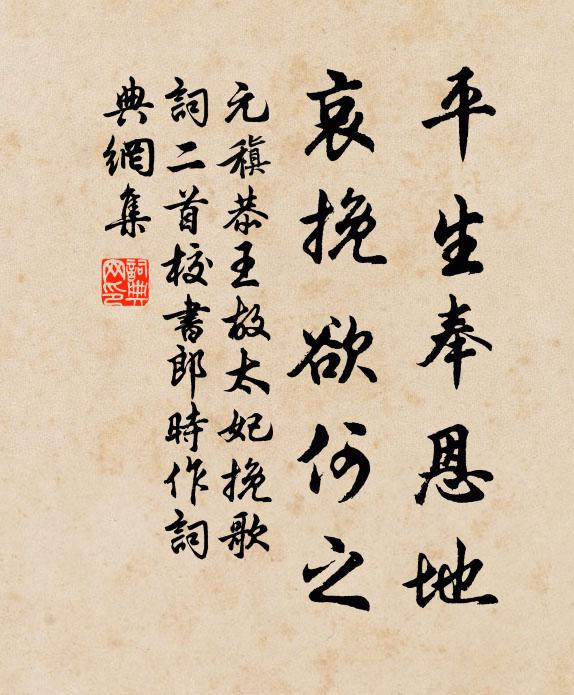 平生奉恩地
哀挽欲何之
元稹恭王故太妃挽歌
詞二首校書郎時作詞
典網集
詞典
网印